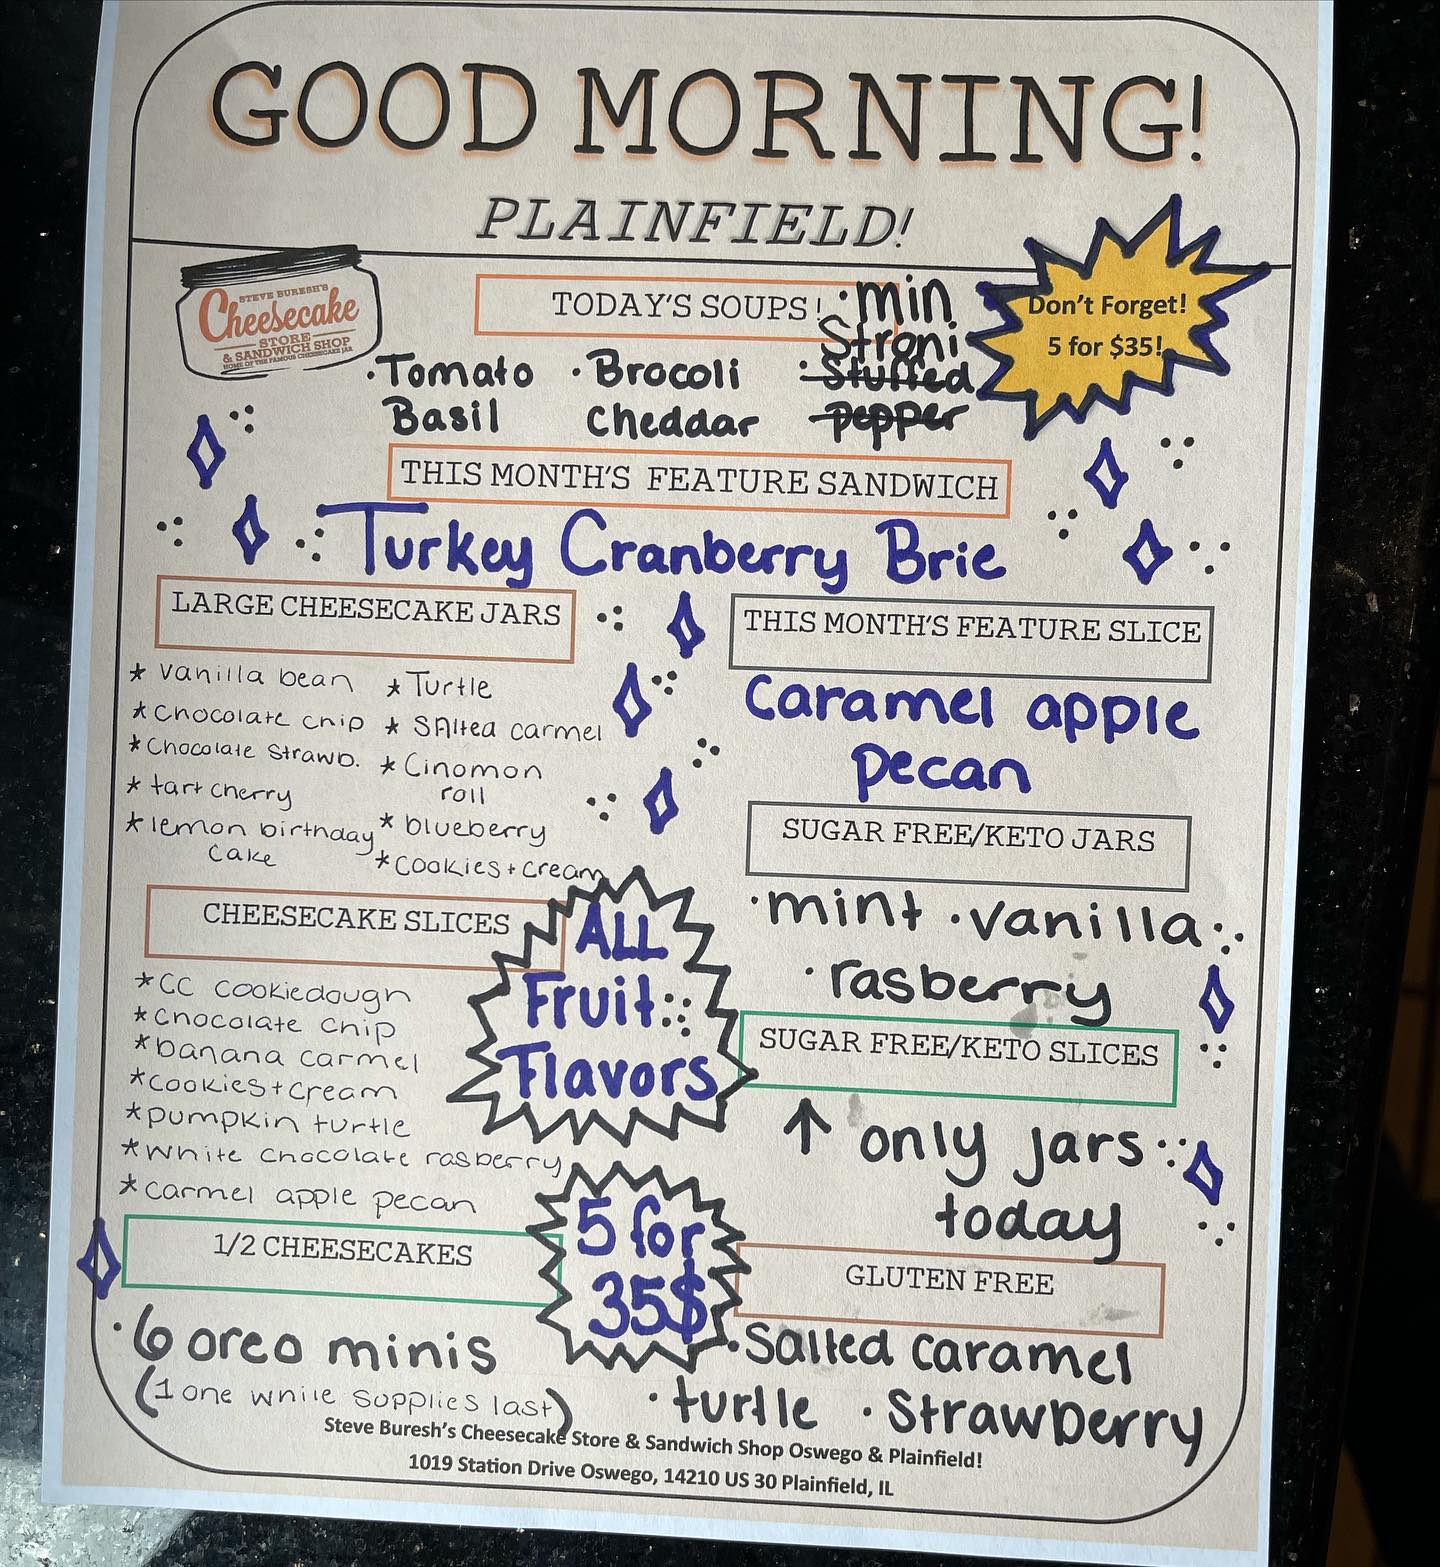 GOOD MORNING!
PLAINFIELD!
STEVE BURESH'S
Cheesecake
STORE
& SANDWICH SHOP
HOME OF THE FAMOUS CHEESECAKE JAR
TODAY'S SOUPS!
Don't Forget!
5 for $35!
· Tomato
Basil
· Brocoli
Cheddar
· min
Stroni
· Stuffed
pepper
THIS MONTH'S FEATURE SANDWICH
Turkey Cranberry Brie
LARGE CHEESECAKE JARS
* vanilla bean
* Chocolate chip
* Chocolate Strawb.
* tart cherry
* lemon birthday
cake
* Turtle
* SAlted carmel
* Cinomon
roll
* blueberry
* cookies + cream
THIS MONTH'S FEATURE SLICE
Caramel apple
pecan
SUGAR FREE/KETO JARS
· mint · vanilla
· rasberry
CHEESECAKE SLICES
* CC cookiedough
* Chocolate chip
* banana carmel
* cookies + cream
* pumpkin turtle
* white chocolate rasberry
* carmel apple pecan
ALL
Fruit
Flavors
SUGAR FREE/KETO SLICES
↑ only jars
today
1/2 CHEESECAKES
· 6 oreo minis
(1 one while supplies last)
5 for
35$
GLUTEN FREE
· Salted caramel
· turtle · Strawberry
Steve Buresh's Cheesecake Store & Sandwich Shop Oswego & Plainfield!
1019 Station Drive Oswego, 14210 US 30 Plainfield, IL